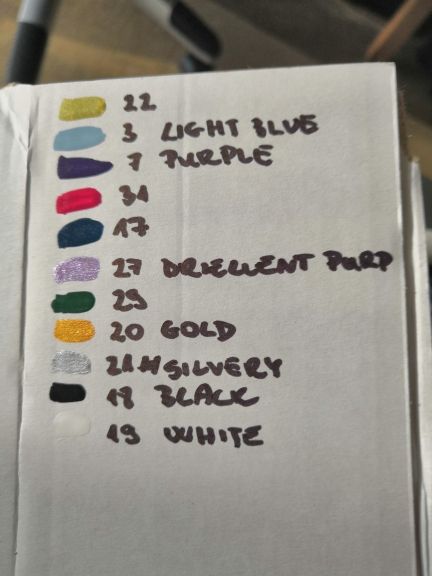 22
3 LIGHT BLUE
7 PURPLE
31
17
27 DRIECLENT PURP
29
20 GOLD
21 SILVERY
18 BLACK
19 WHITE